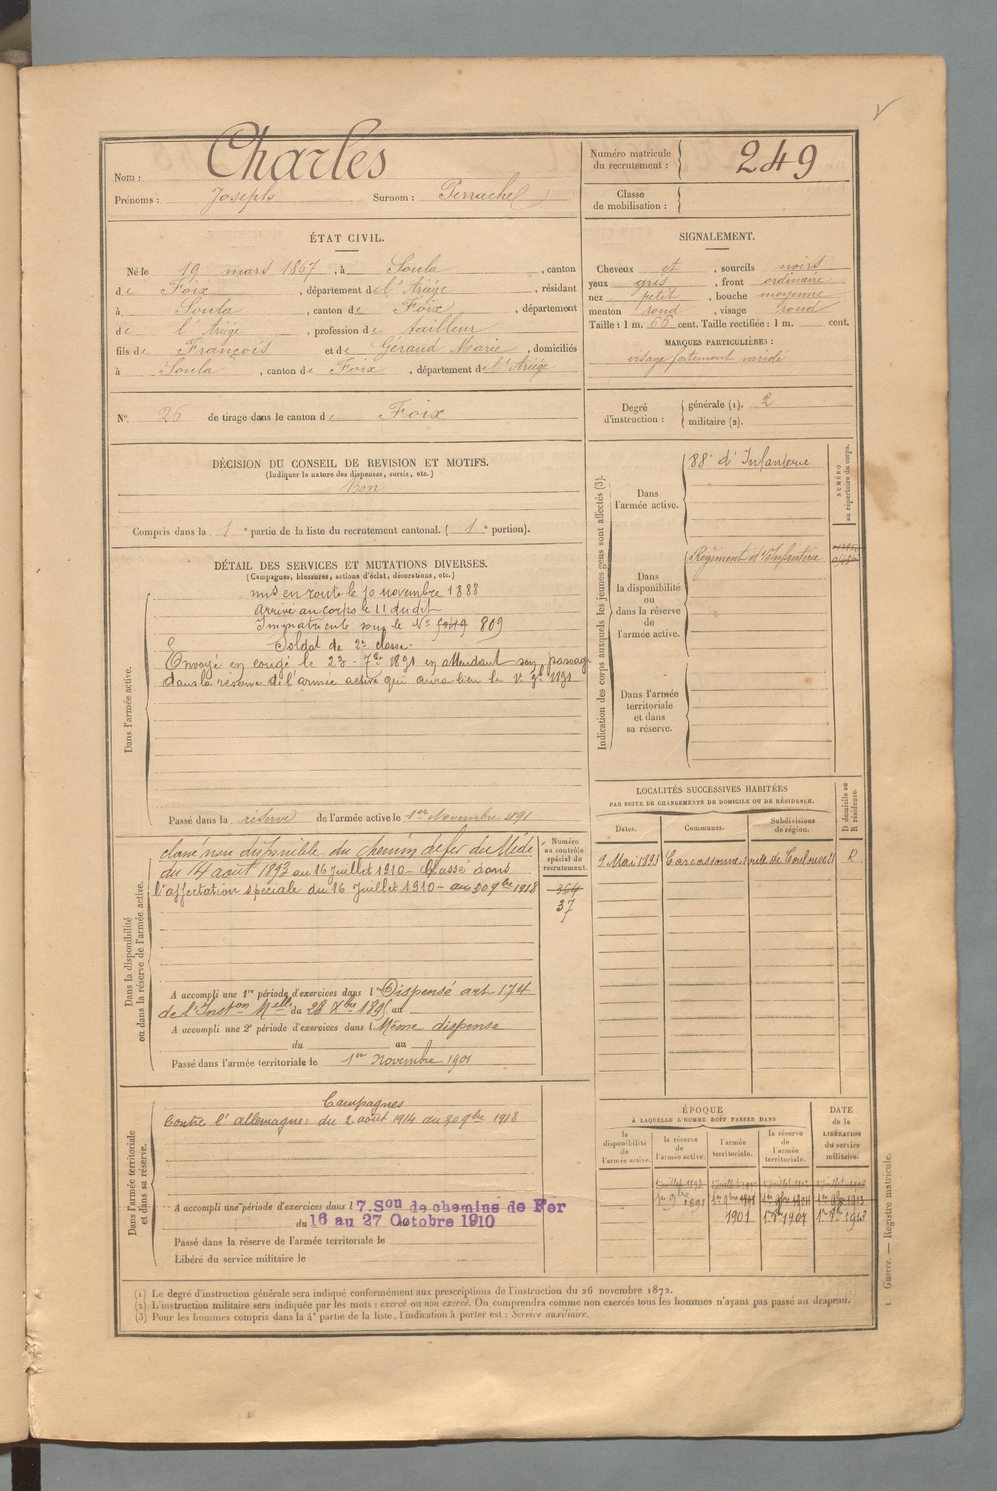 Nom : Charles
Prénoms : Joseph Surnom : Perrachel
Numéro matricule du recrutement : 249
Classe de mobilisation :
ÉTAT CIVIL.
Né le 19 mars 1867, à Soula, canton
de Foix, département de l'Ariège, résidant
à Soula, canton de Foix, département
de l'Ariège, profession de tailleur
fils de François et de Géraud Marie, domiciliés
à Soula, canton de Foix, département de l'Ariège
SIGNALEMENT.
Cheveux et, sourcils noirs
yeux gris, front ordinaire
nez petit, bouche moyenne
menton rond, visage rond
Taille : 1 m. 66 cent. Taille rectifiée : 1 m. cent.
MARQUES PARTICULIÈRES :
visage fortement variolé
N°. 26 de tirage dans le canton de Foix
Degré d'instruction : générale (1). 2
militaire (2).
DÉCISION DU CONSEIL DE REVISION ET MOTIFS.
(Indiquer la nature des dispenses, sursis, etc.)
Bon
Compris dans la 1e partie de la liste du recrutement cantonal. ( 1e portion).
DÉTAIL DES SERVICES ET MUTATIONS DIVERSES.
(Campagnes, blessures, actions d'éclat, décorations, etc.)
Dans l'armée active.
mis en route le 10 novembre 1888
arrivé au corps le 11 du dit
Immatriculé sous le N° 809
Soldat de 2e classe.
Envoyé en congé le 23 7bre 1891 en attendant son passage
dans la réserve de l'armée active qui aura lieu le 1891
Passé dans la réserve de l'armée active le 1er Novembre 1891
Indication des corps auxquels les jeunes gens sont affectés (3).
NUMÉRO au répertoire du corps.
Dans l'armée active.
88e d'Infanterie
Dans la disponibilité ou dans la réserve de l'armée active.
Régiment d'Infanterie
Dans l'armée territoriale et dans sa réserve.
LOCALITÉS SUCCESSIVES HABITÉES
PAR SUITE DE CHANGEMENTS DE DOMICILE OU DE RÉSIDENCE.
Dates. Communes. Subdivisions de région. D domicile ou R résidence.
9 Mai 1893 Carcassonne de Toulouse R
Dans la disponibilité ou dans la réserve de l'armée active.
Numéro au contrôle spécial du recrutement.
classé non disponible du chemin de fer du Midi
du 14 août 1893 au 16 Juillet 1910 - Classé dans
l'affectation spéciale du 16 Juillet 1910 - au 30 9bre 1918
364
37
A accompli une 1re période d'exercices dans l Dispensé art 174
de l'Inston Melle du 28 Xbre 1895 au
A accompli une 2e période d'exercices dans l Même dispense
du au
Passé dans l'armée territoriale le 1er Novembre 1901
Dans l'armée territoriale et dans sa réserve.
Campagnes
Contre l'allemagne: du 2 août 1914 au 30 9bre 1918
A accompli une période d'exercices dans l 7.Son de chemins de Fer
du 16 au 27 Octobre 1910
Passé dans la réserve de l'armée territoriale le
Libéré du service militaire le
ÉPOQUE
À LAQUELLE L'HOMME DOIT PASSER DANS
DATE de la LIBÉRATION du service militaire.
la disponibilité de l'armée active. la réserve de l'armée active. l'armée territoriale. la réserve de l'armée territoriale.
1er 9bre 1891
1901 1907
(1) Le degré d'instruction générale sera indiqué conformément aux prescriptions de l'instruction du 26 novembre 1872.
(2) L'instruction militaire sera indiquée par les mots : exercé ou non exercé. On comprendra comme non exercés tous les hommes n'ayant pas passé au drapeau.
(3) Pour les hommes compris dans la 4e partie de la liste, l'indication à porter est : Service auxiliaire.
1 Guerre. — Registre matricule.